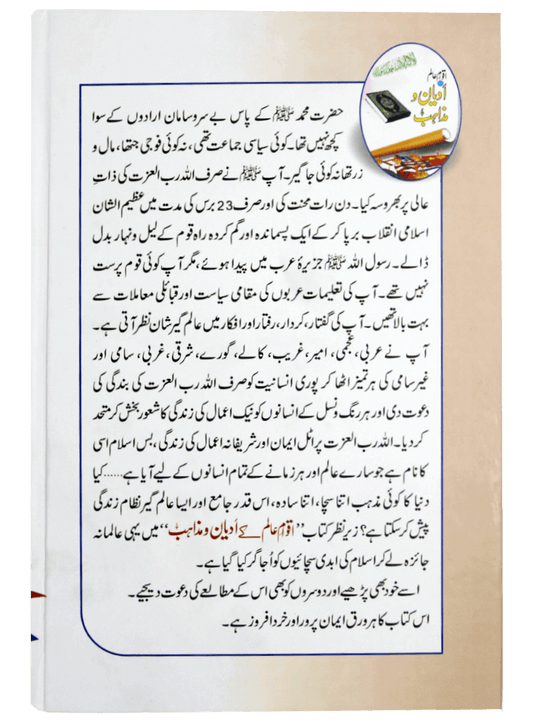 اقوامِ عالم کے
أدیان و
مذاہب
حضرت محمد ﷺ کے پاس بے سروسامان ارادوں کے سوا
کچھ نہیں تھا۔ کوئی سیاسی جماعت تھی، نہ کوئی فوجی جتھا، مال و
زر تھا نہ کوئی جاگیر۔ آپ ﷺ نے صرف اللہ رب العزت کی ذاتِ
عالی پر بھروسہ کیا۔ دن رات محنت کی اور صرف 23 برس کی مدت میں عظیم الشان
اسلامی انقلاب برپا کر کے ایک پسماندہ اور گم کردہ راہ قوم کے لیل و نہار بدل
ڈالے۔ رسول اللہ ﷺ جزیرۂ عرب میں پیدا ہوئے، مگر آپ کوئی قوم پرست
نہیں تھے۔ آپ کی تعلیمات عربوں کی مقامی سیاست اور قبائلی معاملات سے
بہت بالا تھیں۔ آپ کی گفتار، کردار، رفتار اور افکار میں عالم گیر شان نظر آتی ہے۔
آپ نے عربی، عجمی، امیر، غریب، کالے، گورے، شرقی، غربی، سامی اور
غیر سامی کی ہر تمیز اٹھا کر پوری انسانیت کو صرف اللہ رب العزت کی بندگی کی
دعوت دی اور ہر رنگ و نسل کے انسانوں کو نیک اعمال کی زندگی کا شعور بخش کر متحد
کر دیا۔ اللہ رب العزت پر اٹل ایمان اور شریفانہ اعمال کی زندگی، بس اسلام اسی
کا نام ہے جو سارے عالم اور ہر زمانے کے تمام انسانوں کے لیے آیا ہے...... کیا
دنیا کا کوئی مذہب اتنا سچا، اتنا سادہ، اس قدر جامع اور ایسا عالم گیر نظام زندگی
پیش کر سکتا ہے؟ زیرِ نظر کتاب ’’اقوامِ عالم کے أدیان و مذاہب‘‘ میں یہی عالمانہ
جائزہ لے کر اسلام کی ابدی سچائیوں کو اُجاگر کیا گیا ہے۔
اسے خود بھی پڑھیے اور دوسروں کو بھی اس کے مطالعے کی دعوت دیجیے۔
اس کتاب کا ہر ورق ایمان پرور اور خرد افروز ہے۔